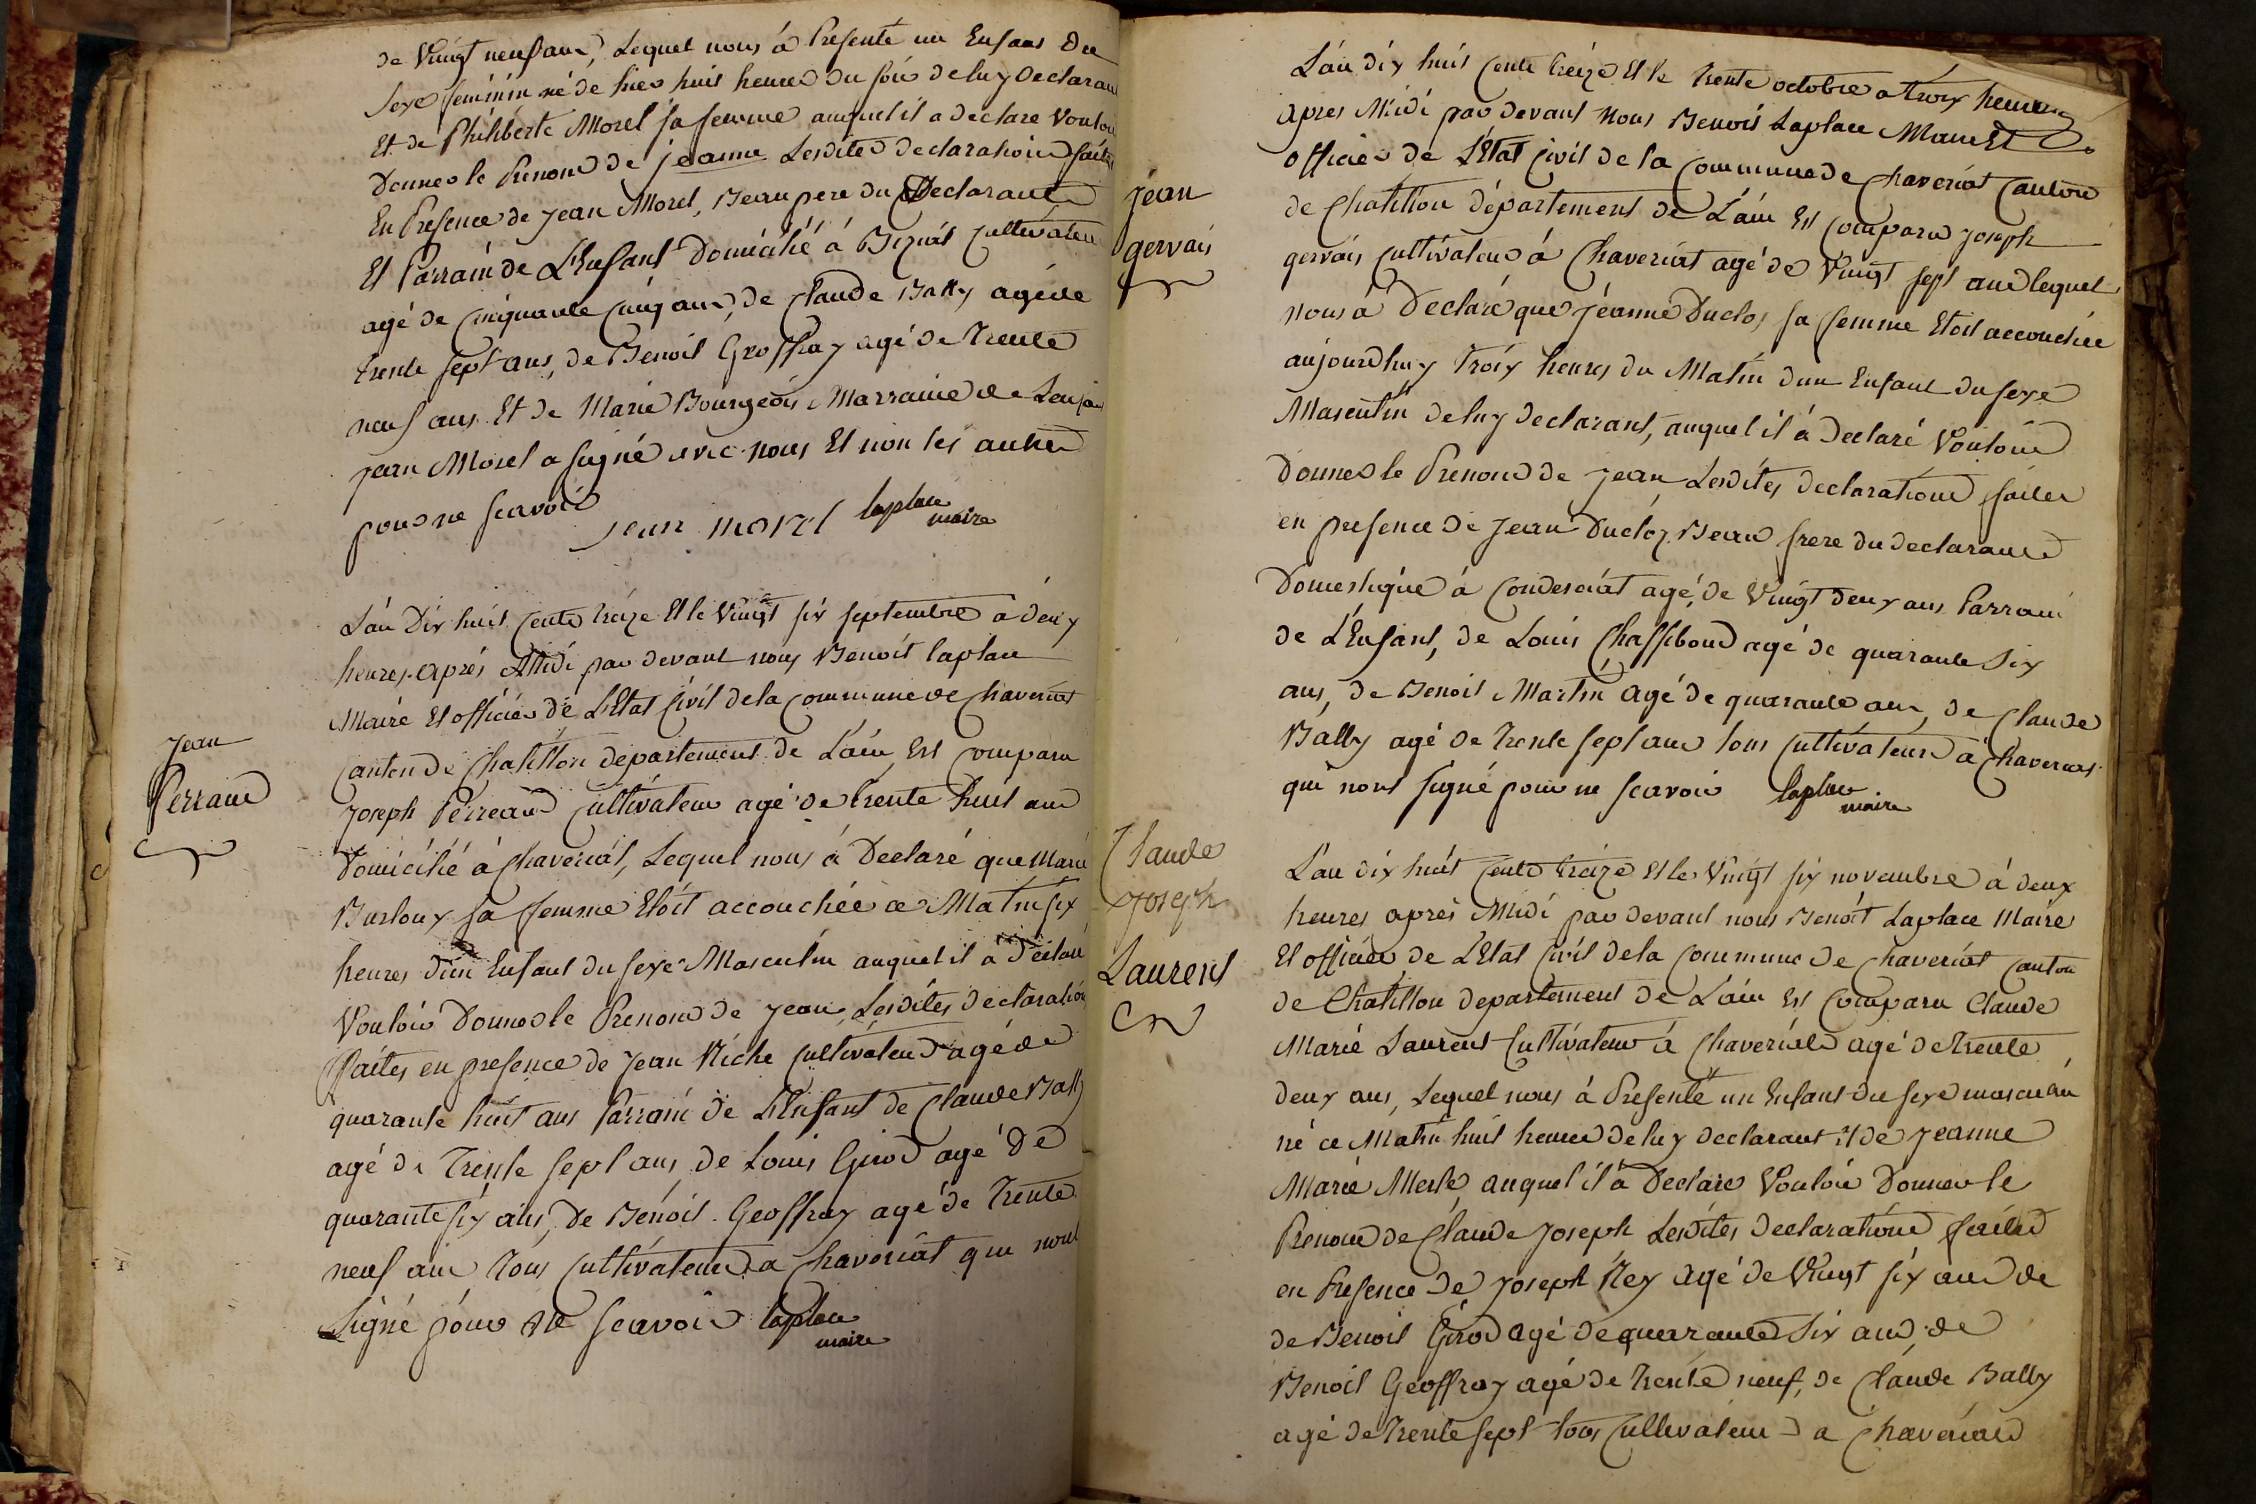 de Vingt neuf ans, Lequel nous á Presenté un Enfant Du
sexe feminin né de hier huit heures du soir de luy Declarant
Et de Philiberte Morel sa femme auquel il a declaré Vouloir
Donner le Prenom de jeanne Lesdites declarations faites
En Presence de Jean Morel, Beau pere du Declarant
Et Parrain de L'Enfant Domicilié á cultivateur
agé de Cinquante Cinq ans, de Claude Bally agé de
trente sept ans, de Benoit Geoffray agé de Trente
neuf ans Et de Marie Bourgeois Marraine de
jean Morel a signé avec nous Et non les autres
pour ne scavoir
jean morel laplace
maire
Jean
Perraud
L'an Dix huit Cents treize Et le Vingt six septembre á deux
heures aprés Midi par devant nous Benoit laplace
Maire Et officier de L'Etat Civil de la Commune de Chaveriat
Canton de Chatillon departement de L'ain, Est Comparu
Joseph Perreaud Cultivateur agé de trente huit ans
Domicilié á Chaveriat, Lequel nous á Declaré que Marie
Burloux sa femme Etoit accouchée ce Matin six
heures d'un Enfant du sexe Masculin auquel il á Déclaré
Vouloir Donner le Prenom de Jean, Lesdites declaration
faites en presence de Jean Niche Cultivateur agé de
quarante huit ans Parrain de L'Enfant de Claude Bally
agé de Trente sept ans, de Louis Girod agé de
quarante six ans, de Benoit Geoffray agé de Trente
neuf ans Tous Cultivateurs a Chaveriat qui nont
signé pour ne scavoir laplace
maire
jean
gervais
L'an dix huit Cents treize Et le trente octobre a trois heures
apres Midi par devant Nous Benoit Laplace Maire Et
officier de L'Etat Civil de la Commune de Chaveriat Canton
de Chatillon département de L'ain Est Comparu Joseph
gervais Cultivateur á Chaveriat agé de Vingt sept ans lequel
nous á Declaré que Jéanne Duclos sa femme Etoit accouchée
aujourdhuy Trois heures du Matin d'un Enfant du sexe
Masculin de luy declarant, auquel il á Declaré Vouloir
Donner le Prenom de Jean Lesdites declarations faites
en presence de Jean Duclos Beau frere du declarant
Domestique á Condeciat agé de Vingt deux ans Parrain
de L'Enfant, de Louis Chassiboud agé de quarante six
ans, de Benoit Martin agé de quarante ans, de Claude
Bally agé de Trente sept ans tous Cultivateurs á Chaveriat
qui nont signé pour ne scavoir laplace
maire
Claude
Joseph
Laurent
L'an dix huit Cents treize Et le Vingt six novembre á deux
heures aprés Midi par devant nous Benoit Laplace Maire
Et officier de L'Etat Civil de la Commune de Chaveriat Canton
de Chatillon departement de L'ain Est Comparu Claude
Marie Laurent Cultivateur á Chaveriat agé de Trente
deux ans, Lequel nous á Presenté un Enfant du sexe masculin
né ce Matin huit heures de luy declarant Et de Jeanne
Marie Merle auquel il á Declaré Vouloir Donner le
Prenom de Claude Joseph Lesdites declarations faites
en Presence de Joseph Rey agé de Vingt six ans de
de Benoit Girod agé de quarante Six ans, de
Benoit Geoffray agé de Trente neuf, de Claude Bally
agé de Trente sept tous Cultivateurs a Chaveriat